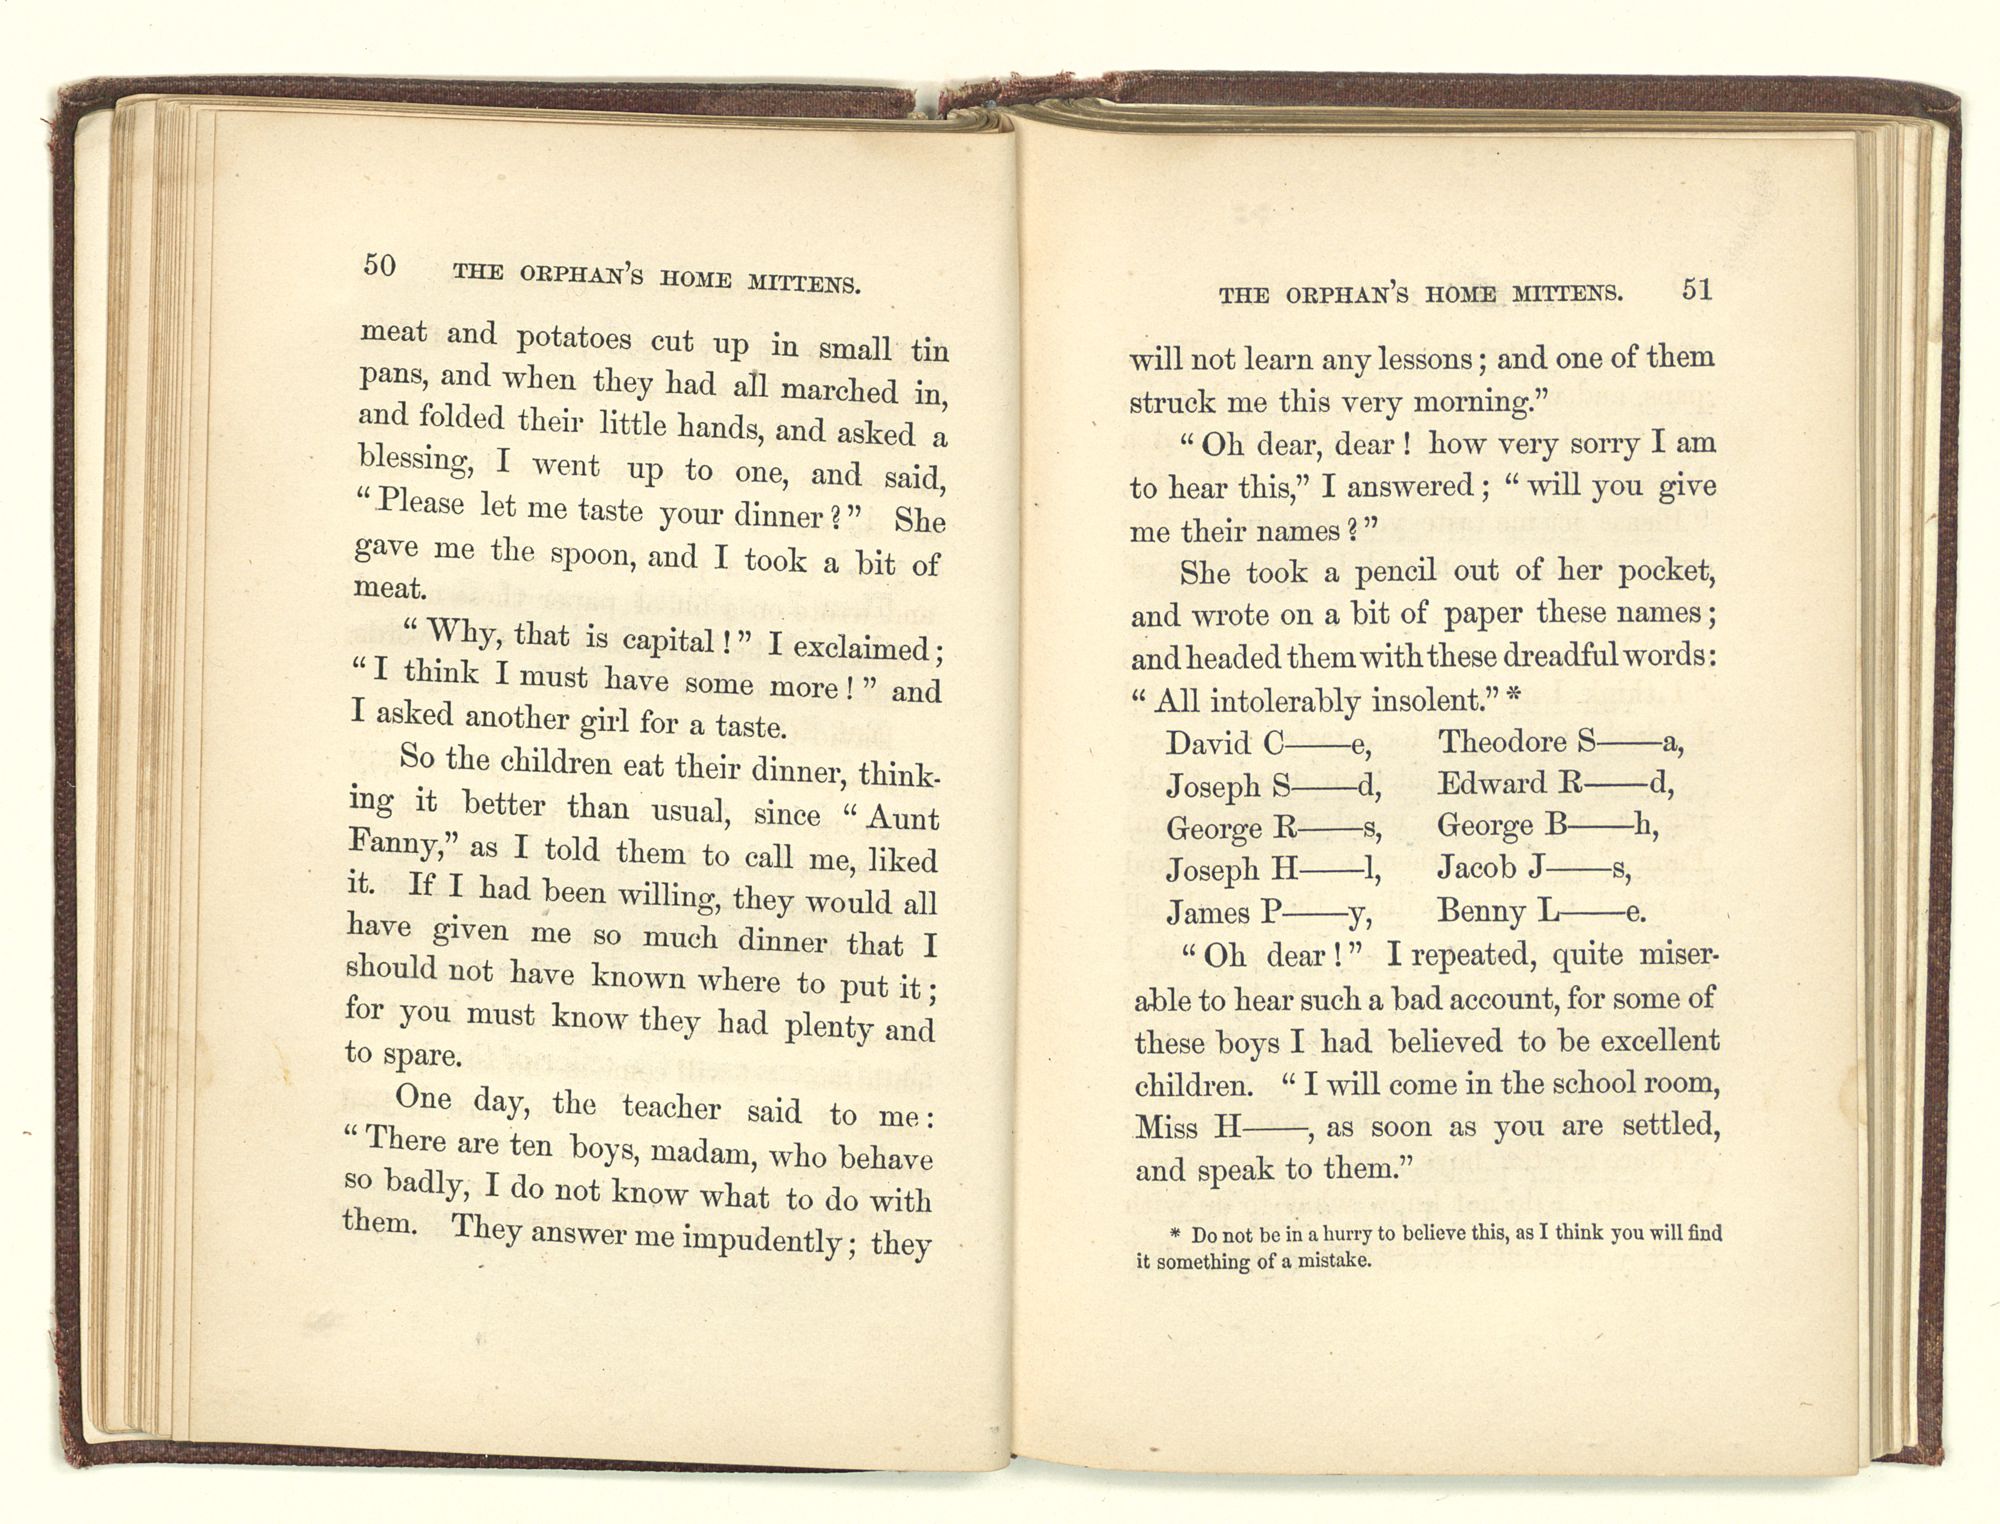 50 THE ORPHAN'S HOME MITTENS.
meat and potatoes cut up in small tin
pans, and when they had all marched in,
and folded their little hands, and asked a
blessing, I went up to one, and said,
“Please let me taste your dinner?” She
gave me the spoon, and I took a bit of
meat.
“Why, that is capital!” I exclaimed;
“I think I must have some more!” and
I asked another girl for a taste.
So the children eat their dinner, think-
ing it better than usual, since “Aunt
Fanny,” as I told them to call me, liked
it. If I had been willing, they would all
have given me so much dinner that I
should not have known where to put it;
for you must know they had plenty and
to spare.
One day, the teacher said to me:
“There are ten boys, madam, who behave
so badly, I do not know what to do with
them. They answer me impudently; they
THE ORPHAN'S HOME MITTENS. 51
will not learn any lessons; and one of them
struck me this very morning.”
“Oh dear, dear! how very sorry I am
to hear this,” I answered; “will you give
me their names?”
She took a pencil out of her pocket,
and wrote on a bit of paper these names;
and headed them with these dreadful words:
“All intolerably insolent.”*
David C——e, Theodore S——a,
Joseph S——d, Edward R——d,
George R——s, George B——h,
Joseph H——l, Jacob J——s,
James P——y, Benny L——e.
“Oh dear!” I repeated, quite miser-
able to hear such a bad account, for some of
these boys I had believed to be excellent
children. “I will come in the school room,
Miss H——, as soon as you are settled,
and speak to them.”
* Do not be in a hurry to believe this, as I think you will find
it something of a mistake.